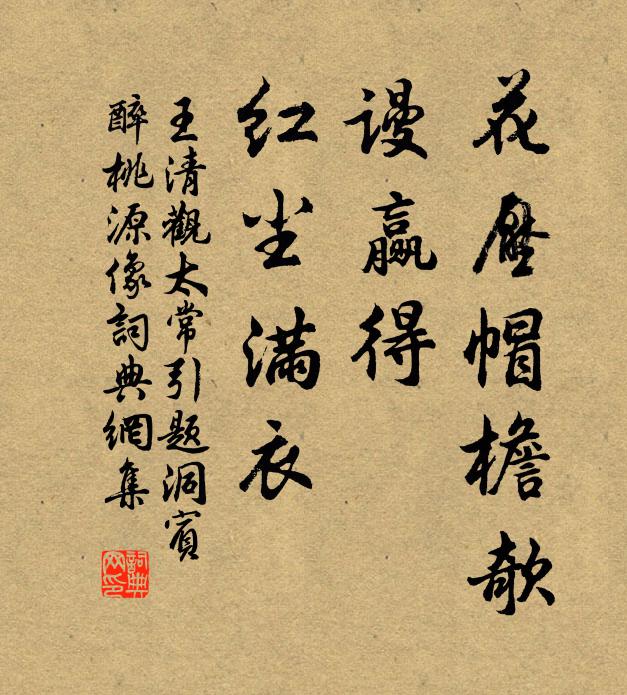 花壓帽檐欹
謾贏得
红尘滿衣
王清觀太常引题洞賓
醉桃源像詞典網集
詞典
网印